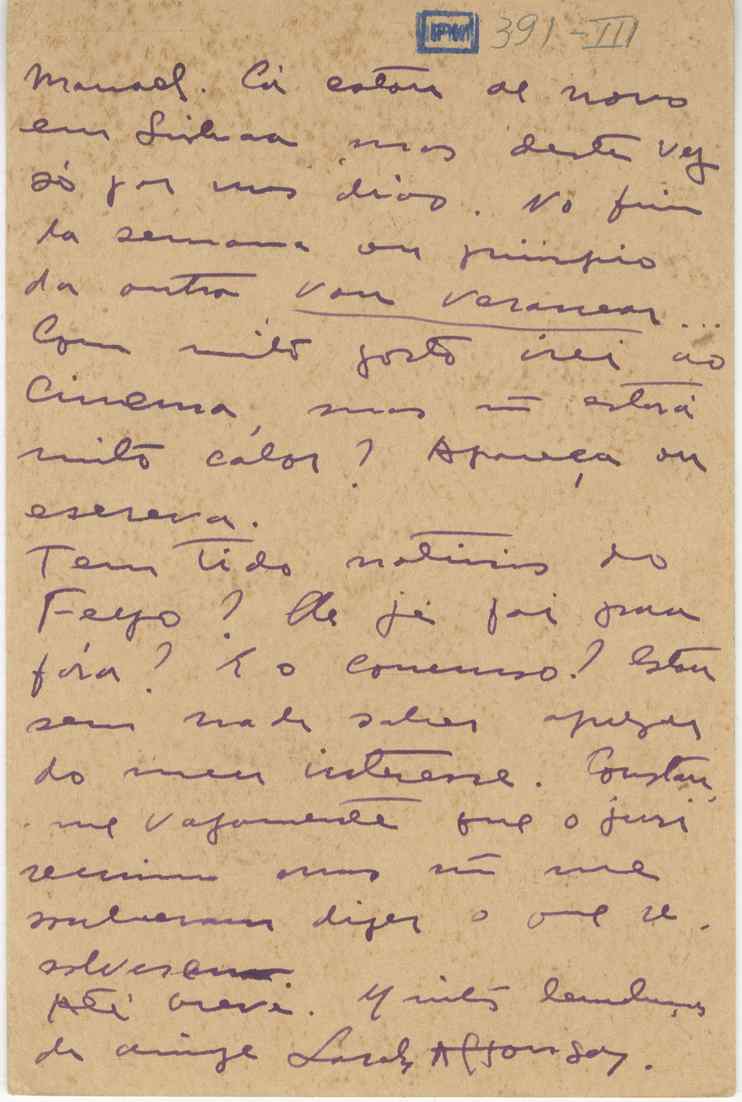 391-III
Manoel. Cá estou de novo
em Lisboa mas desta vez
só por uns dias. No fim
da semana ou principio
da outra vou veranear...
Com mito gosto irei ao
Cinema, mas ñ estará
mito calor? Apareça ou
escreva.
Tem tido noticias do
Feyo? Ele já foi para
fóra? E o concurso? Estou
sem nada saber apezar
do meu interesse. Constou
-me vagamente que o juri
reuniu mas ñ me
souberam dizer o que re-
solveram
Até breve. Muitas lembranças
da amiga Sarah Affonso.